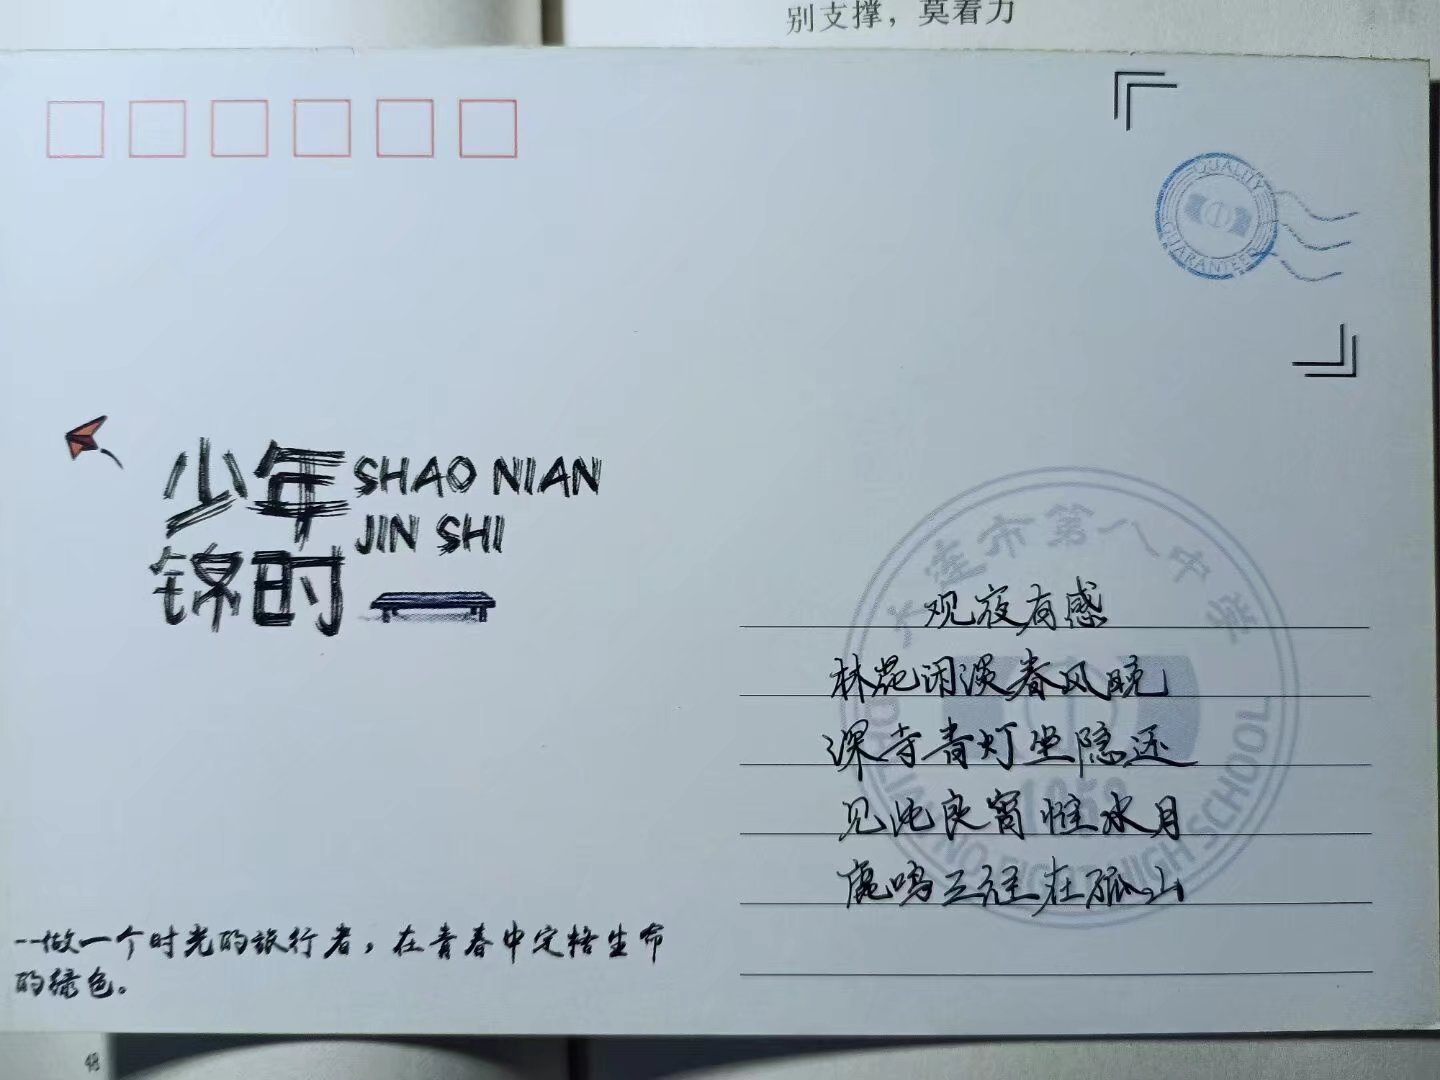 别支撑，莫着力
QUALITY
GUARANTEED
少年
锦时
SHAO NIAN
JIN SHI
大连市第八中学
观夜有感
林苑闲淡春风晚
深寺青灯坐隐还
见此良宵惟水月
鹿鸣三径在孤山
HIGH SCHOOL
--做一个时光的旅行者，在青春中定格生命
的绿色。
48